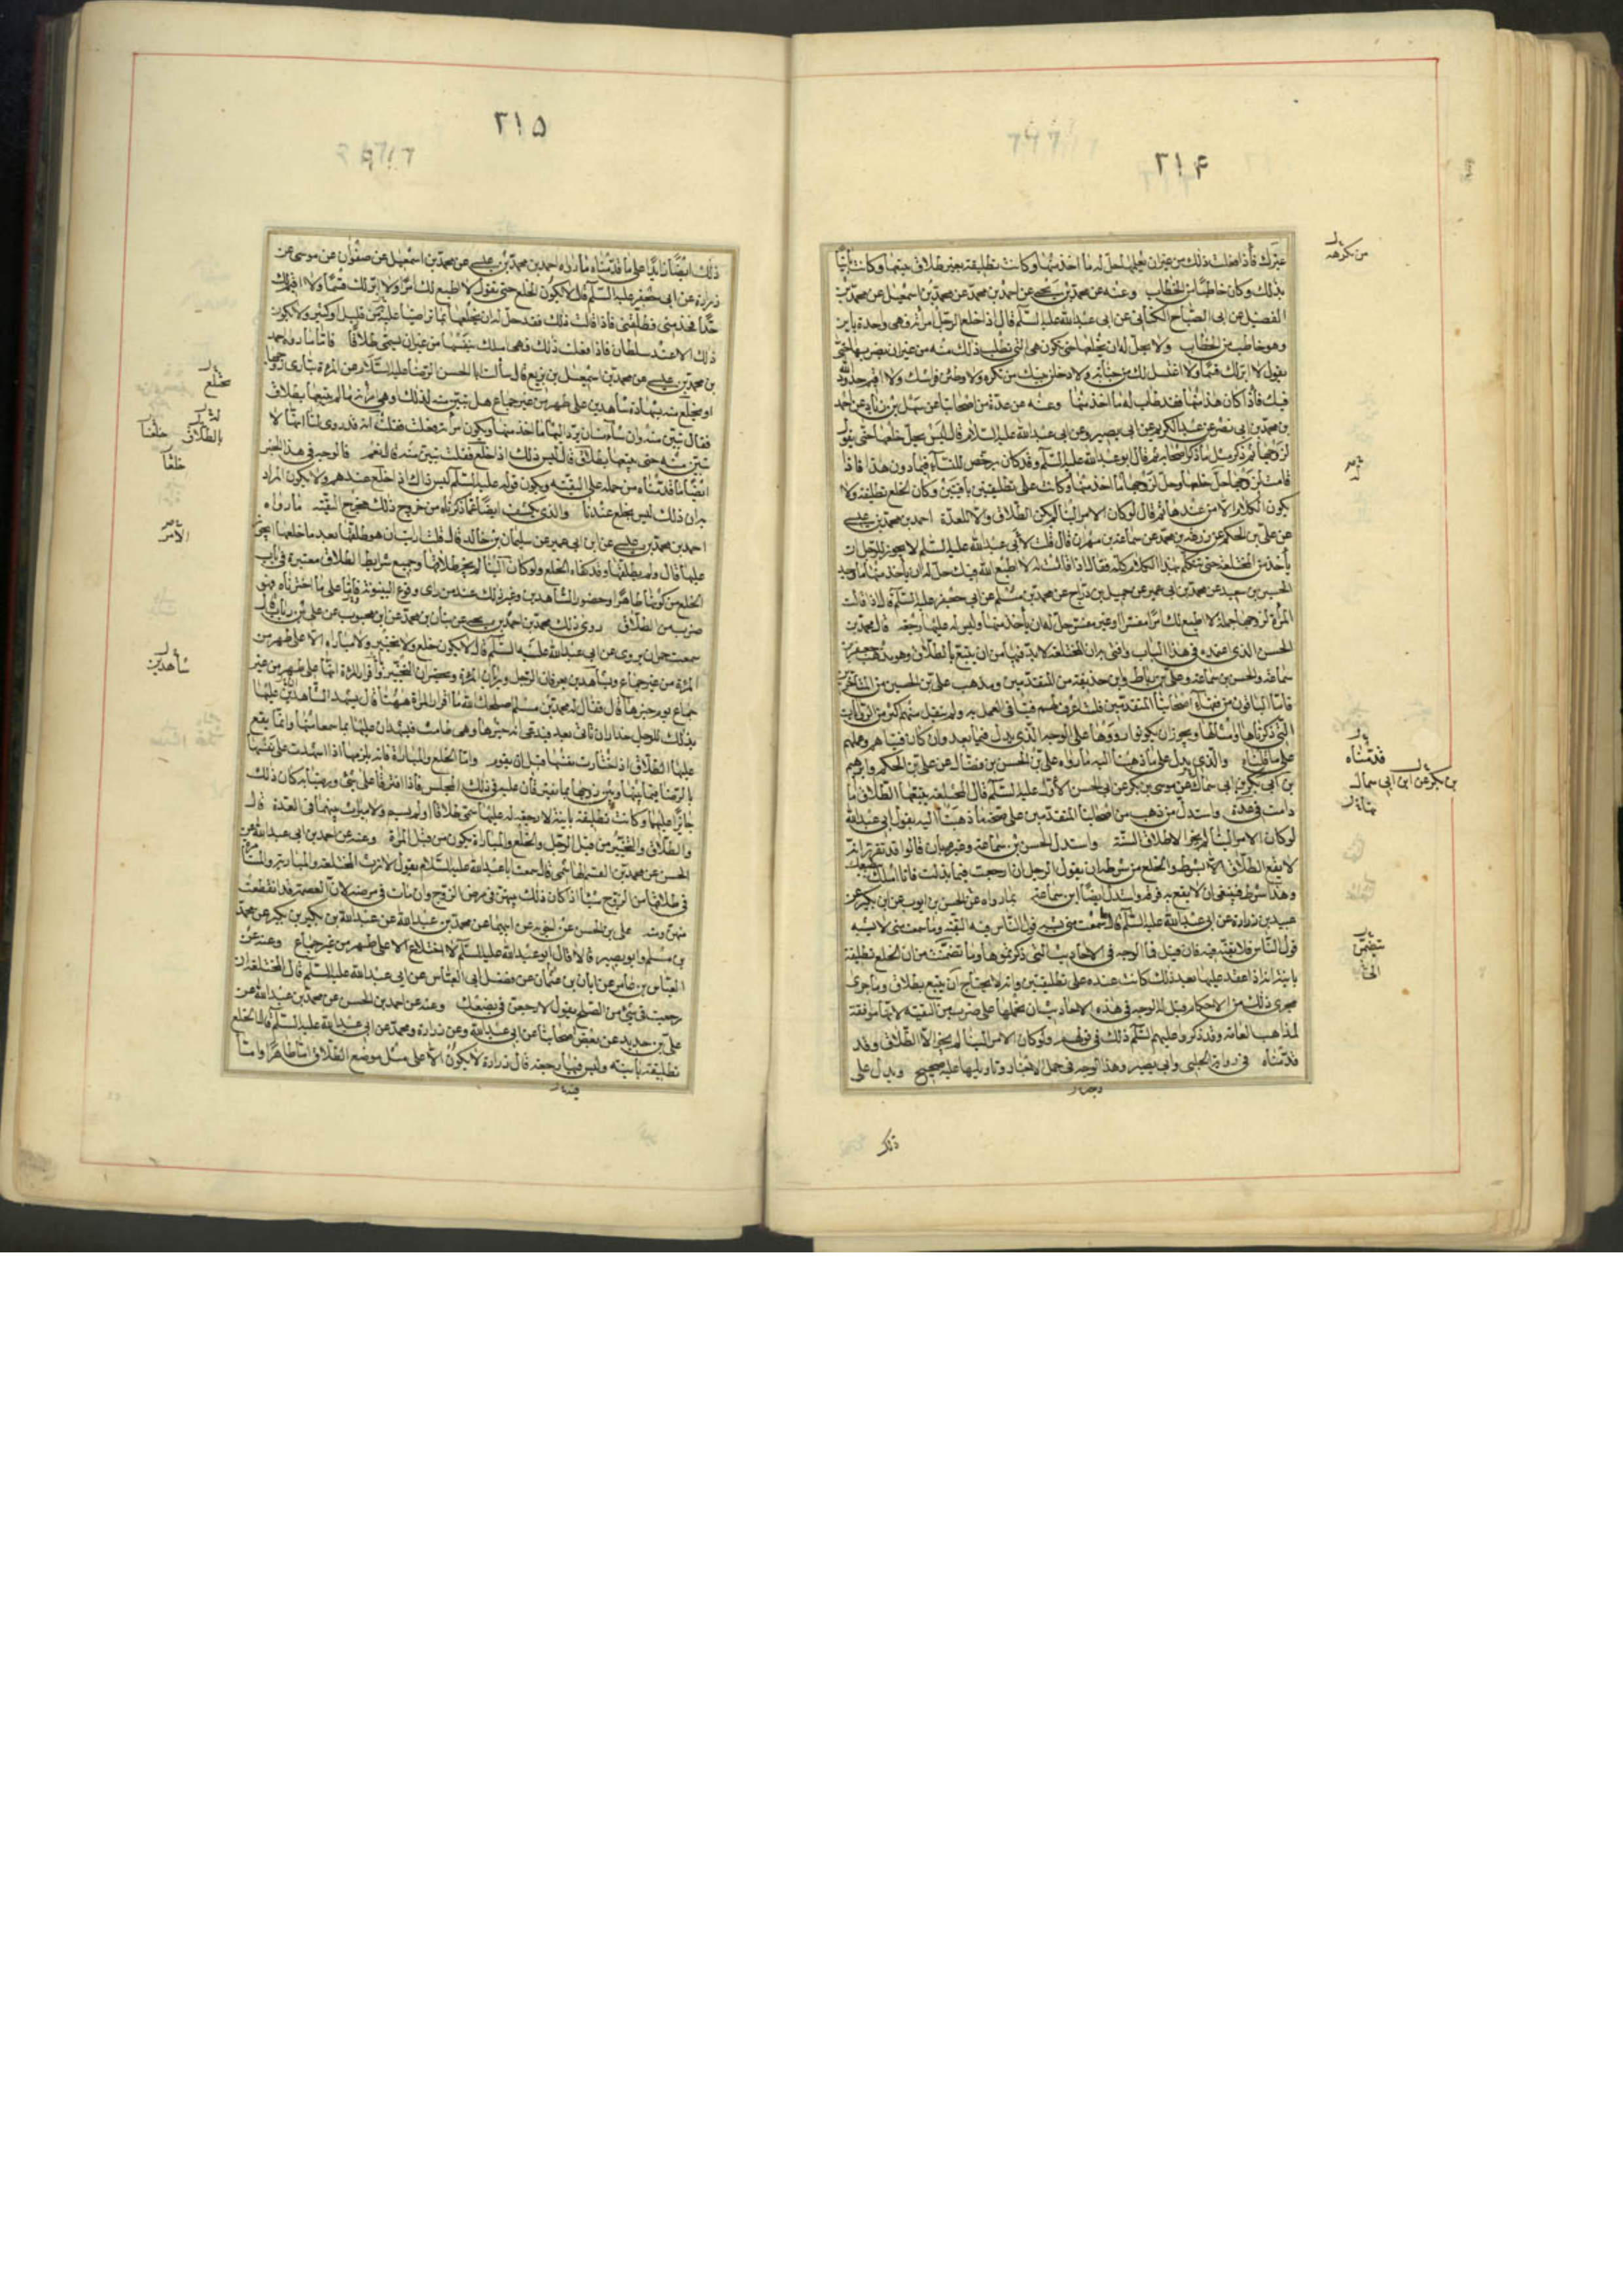 ٢١۴
غيرك فاذا فعلت ذلك من غير ان يعلمها حل له ما اخذ منها وكانت تطليقة بغير طلاق يتبعها وكانت بائنا
بذلك وكان خاطبا من الخطاب وعنه عن محمد بن يحيى عن احمد بن محمد عن محمد بن اسمعيل عن محمد بن
الفضيل عن ابى الصباح الكنانى عن ابى عبدالله عليه السلم قال اذا خلع الرجل امراته فهى واحدة باين
وهو خاطب من الخطاب ولا يحل له ان يخلعها حتى تكون هى التى تطلب ذلك منه من غير ان يضر بها حتى
يقول لا ابر لك قسما ولا اغتسل لك من جنابة ولادخلن بيتك من تكره ولاوطئن فراشك ولا اقيم حدود الله
فيك فاذا كان هذا منها فقد طاب له ما اخذ منها وعنه عن عدة من اصحابنا عن سهل بن زياد عن احمد
بن محمد بن ابى نصر عن عبد الكريم عن ابى بصير عن ابى عبدالله عليه السلام قال ليس يحل خلعها حتى تقول
لزوجها ثم ذكر مثل ما ذكر اصحابه ثم قال ابو عبدالله عليه السلم وقد كان يرخص للنساء فيما دون هذا فاذا
قالت لزوجها حل خلعها وحل لزوجها ما اخذ منها وكانت على تطليقتين باقيتين وكان الخلع تطليقة ولا
يكون الكلام الا من عندها ثم قال لو كان الامر الينا لم يكن الطلاق الا للعدة احمد بن محمد بن عيسى
عن على بن الحكم عن زرعة بن محمد عن سماعة بن مهران قال قلت لابى عبدالله عليه السلم لا يجوز للرجل ان
يأخذ من المختلعة حتى تتكلم بهذا الكلام كله فقال اذا قالت له لا اطيع الله فيك حل له ان ياخذ منها ما وجد
الحسين بن سعيد عن محمد بن ابى عمير عن جميل بن دراج عن محمد بن مسلم عن ابى جعفر عليه السلم قال اذا قالت
المرأة لزوجها جملة لا اطيع لك امرا مفسرا او غير مفسر حل له ان ياخذ منها وليس له عليها رجعة قال محمد بن
الحسن الذى اعتمده فى هذا الباب وافتى به ان المختلعة لا بد فيها من ان يتبع بالطلاق وهو مذهب جعفر بن
سماعة والحسن بن سماعة وعلى بن رباط وابن حذيفة من المتقدمين ومذهب على بن الحسين من المتاخرين
فاما الباقون من فقهاء اصحابنا المتقدمين فلست اعرف لهم فتيا فى العمل به ولم ينقل منهم اكثر من الروايات
التى ذكرناها وامثالها ويجوز ان يكونوا رووها على الوجه الذى يدل فيما بعد وان كان فتياهم وعملهم
على ما قلناه والذى يدل على ما ذهبنا اليه ما رواه على بن الحسن بن فضال عن على بن الحكم وابرهيم
بن ابى بكر بن ابى سمال عن موسى بن بكر عن ابى الحسن الاول عليه السلم قال المختلعة يتبعها الطلاق ما
دامت فى عدة واستدل من ذهب من اصحابنا المتقدمين على صحة ما ذهبنا اليه بقول ابى عبدالله
لو كان الامر الينا لم يجز الا طلاق السنة واستدل الحسن بن سماعة وغيره بان قالوا قد تقرر انه
لا يقع الطلاق الا بشرط والخلع من شرطه ان يقول الرجل ان رجعت فيما بذلت فانا املك ببضعك
وهذا شرط فينبغى ان لا يقع به فرقة واستدل ايضا ابن سماعة بما رواه عن الحسن بن ايوب عن ابن بكير عن
عبيد بن زرارة عن ابى عبدالله عليه السلم قال ما سمعت منى يشبه قول الناس فيه التقية وما سمعت منى لا يشبه
قول الناس فلا تقية فيه فان قيل فما الوجه فى الاحاديث التى ذكرتموها وما تضمنت من ان الخلع تطليقة
باينة وانه اذا عقد عليها بعد ذلك كانت عنده على تطليقتين وانه لا يحتاج ان يتبع بطلاق وما جرى
مجرى ذلك من الاحكام قيل له الوجه فى هذه الاحاديث ان نحملها على ضرب من التقية لانها موافقة
لمذاهب العامة وقد ذكروا عليهم السلم ذلك فى قولهم ولو كان الامر الينا لم يجز الا الطلاق وقد
قدمناه فى رواية الحلبى وابى بصير وهذا الوجه فى حمل الاخبار وتاويلها عليه صحيح ويدل على
ذلك
من تكرهه
قدمناه
بن بكر عن ابن ابى سمال
تضمن
٢١۵
ذلك ايضا زايدا على ما قدمناه ما رواه احمد بن محمد بن عيسى عن محمد بن اسمعيل عن صفوان عن موسى عن
زرارة عن ابى جعفر عليه السلم قال لا يكون الخلع حتى تقول لا اطيع لك امرا ولا ابر لك قسما ولا اقيم لك
حدا فخذ منى وطلقنى فاذا قالت ذلك فقد حل له ان يخلعها بما تراضيا عليه من قليل او كثير ولا يكون
ذلك الا عند سلطان فاذا فعلت ذلك فهى املك بنفسها من غير ان يسمى طلاقا فاما ما رواه احمد
بن محمد بن عيسى عن محمد بن اسمعيل بن بزيع قال سألت ابا الحسن الرضا عليه السلام عن المرأة تبارى زوجها
او تختلع منه بشهادة شاهدين على طهر من غير جماع هل تبين منه بذلك او هى امرأته ما لم يتبعها بطلاق
فقال تبين منه وان شاءت ان يرد اليها ما اخذ منها ويكون امرأته فعلت فقلت انه قد روى لنا انها لا
تبين منه حتى يتبعها بطلاق قال ليس ذلك اذا خلع فقلت تبين منه قال نعم فالوجه فى هذا الخبر
ايضا ما قدمناه من حمله على التقية ويكون قوله عليه السلم ليس ذلك اذا خلع عندهم ولا يكون المراد
به ان ذلك ليس بخلع عندنا والذى يكشف ايضا عما ذكرناه من خروج ذلك مخرج التقية ما رواه
احمد بن محمد بن عيسى عن ابن ابى عمير عن سليمان بن خالد قال قلت ارايت ان هو طلقها بعد ما خلعها ايجوز
عليها قال ولم يطلقها وقد كفاه الخلع ولو كان الامر الينا لم يجز طلاقها وجميع شرايط الطلاق معتبرة فى باب
الخلع من كونها طاهرا وحضور الشاهدين وغير ذلك عند من راى وقوع البينونة فاما على ما اخترناه فهو
ضرب من الطلاق روى ذلك محمد بن احمد بن يحيى عن بنان بن محمد عن ابن محبوب عن على بن رباب قال
سمعت حمران يروى عن ابى عبدالله عليه السلم قال لا يكون خلع ولا تخيير ولا مباراة الا على طهر من
المرأة من غير جماع وشاهدين يعرفان الرجل ويريان المرأة ويحضران التخيير واقرار المرأة انها على طهر من غير
جماع يوم خيرها قال فقال له محمد بن مسلم اصلحك الله ما اقرار المرأة ههنا قال يشهد الشاهدان عليها
بذلك للرجل حذار ان تاتى بعد فتدعى انه خيرها وهى طامث فيشهدان عليها بما سمعا منها وانما يقع
عليها الطلاق اذا اختارت نفسها قبل ان يقوم واما الخلع والمباراة فانه يلزمها اذا اشهدت على نفسها
بالرضا فيما بينها وبين زوجها بما يفترقان عليه فى ذلك المجلس فاذا افترقا على شىء ورضيا به كان ذلك
جائزا عليهما وكانت تطليقة باينة لا رجعة له عليها سمى طلاقا اولم يسم ولا ميراث بينهما فى العدة قال
والطلاق والتخيير من قبل الرجل والخلع والمباراة يكون من قبل المرأة وعنه عن احمد بن ابى عبدالله عن
الحسن عن محمد بن القسم الهاشمى قال سمعت ابا عبدالله عليه السلام يقول لا ترث المختلعة والمبارئة والمستأمرة
فى طلاقها من الزوج شيئا اذا كان ذلك منهن فى مرض الزوج وان مات فى مرضه لان العصمة قد انقطعت
منهن ومنه على بن الحسن عن اخويه عن ابيهما عن محمد بن عبدالله عن عبدالله بن بكير عن محمد
بن مسلم وابو بصير قالا قال ابو عبدالله عليه السلم لا اختلاع الا على طهر من غير جماع وعنه عن
العباس بن عامر عن ابان بن عثمان عن فضل ابى العباس عن ابى عبدالله عليه السلم قال المختلعة ان
رجعت فى شىء من الصلح يقول لارجعن فى بضعك وعنه عن احمد بن الحسن عن محمد بن عبدالله عن
على بن حديد عن بعض اصحابنا عن ابى عبدالله وعن زرارة ومحمد عن ابى عبدالله عليه السلم قال الخلع
تطليقة باينة وليس فيها رجعة قال زرارة لا يكون الا على مثل موضع الطلاق اما طاهرا واما
تختلع
بالطلاق خلعها
خلعا
الامر
شاهدين